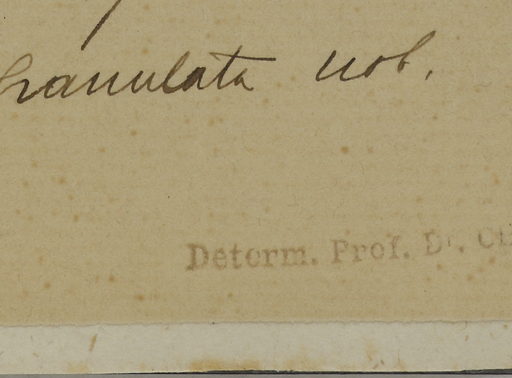 granulata nob.
Determ. Prof. Dr.